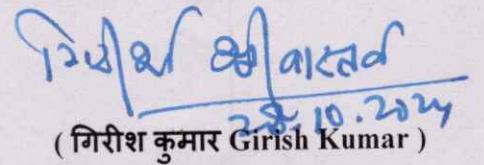 गिरीश श्रीवास्तव
28.10.2024
( गिरीश कुमार Girish Kumar )